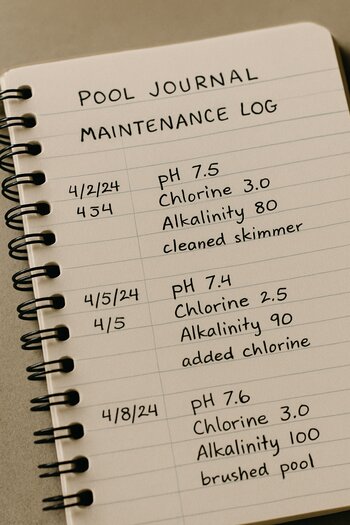 POOL JOURNAL
MAINTENANCE LOG
4/2/24 pH 7.5
434 Chlorine 3.0
Alkalinity 80
cleaned skimmer
4/5/24 pH 7.4
4/5 Chlorine 2.5
Alkalinity 90
added chlorine
4/8/24 pH 7.6
Chlorine 3.0
Alkalinity 100
brushed pool